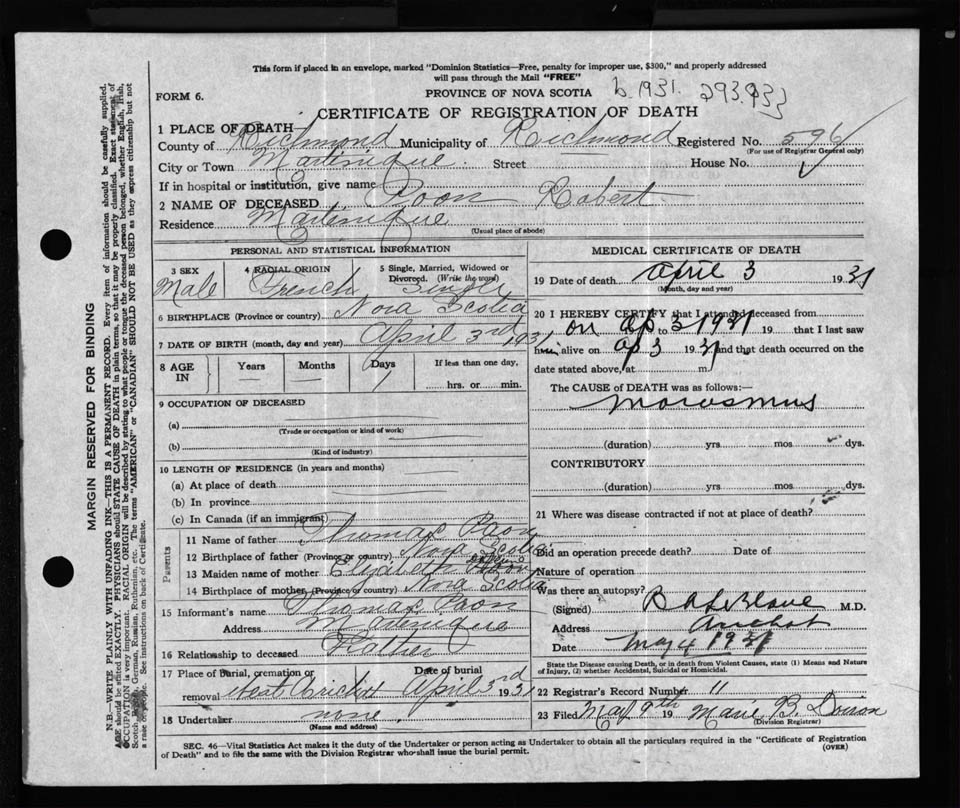 This form if placed in an envelope, marked "Dominion Statistics—Free, penalty for improper use, $300," and properly addressed
will pass through the Mail "FREE"
PROVINCE OF NOVA SCOTIA
b 1931. 293933
FORM 6.
CERTIFICATE OF REGISTRATION OF DEATH
1 PLACE OF DEATH
County of Richmond Municipality of Richmond Registered No. 596
(For use of Registrar General only)
City or Town Martinique. Street House No.
If in hospital or institution, give name
2 NAME OF DECEASED Poon Robert
Residence Martinique
(Usual place of abode)
PERSONAL AND STATISTICAL INFORMATION
3 SEX Male
4 RACIAL ORIGIN French
5 Single, Married, Widowed or Divorced. (Write the word) Single
6 BIRTHPLACE (Province or country) Nova Scotia
7 DATE OF BIRTH (month, day and year) April 3rd 1931
8 AGE IN Years Months Days If less than one day,
— — 1 hrs. or min.
9 OCCUPATION OF DECEASED
(a)
(Trade or occupation or kind of work)
(b)
(Kind of industry)
10 LENGTH OF RESIDENCE (in years and months)
(a) At place of death
(b) In province
(c) In Canada (if an immigrant)
Parents
11 Name of father Thomas Paon
12 Birthplace of father (Province or country) Nova Scotia
13 Maiden name of mother Elizabeth
14 Birthplace of mother (Province or country) Nova Scotia
15 Informant's name Thomas Paon
Address Martinique
16 Relationship to deceased Father
17 Place of burial, cremation or removal West Arichat Date of burial April 3rd 1931
18 Undertaker none
(Name and address)
MEDICAL CERTIFICATE OF DEATH
19 Date of death April 3 1931
(Month, day and year)
20 I HEREBY CERTIFY that I attended deceased from
on Ap 3 1931 19 to 19 that I last saw
him alive on Ap 3 1931 and that death occurred on the
date stated above, at m.
The CAUSE OF DEATH was as follows:—
Marasmus
(duration) yrs mos dys.
CONTRIBUTORY
(duration) yrs mos dys.
21 Where was disease contracted if not at place of death?
Did an operation precede death? Date of
Nature of operation
Was there an autopsy?
(Signed) B A LeBlanc M.D.
Address Arichat
Date May 4 1931
State the Disease causing Death, or in death from Violent Causes, state (1) Means and Nature
of Injury, (2) whether Accidental, Suicidal or Homicidal.
22 Registrar's Record Number 11
23 Filed May 9th 19 Marie B. Doiron
(Division Registrar)
SEC. 46—Vital Statistics Act makes it the duty of the Undertaker or person acting as Undertaker to obtain all the particulars required in the "Certificate of Registration
of Death" and to file the same with the Division Registrar who shall issue the burial permit.
(OVER)
MARGIN RESERVED FOR BINDING
N.B.—WRITE PLAINLY WITH UNFADING INK—THIS IS A PERMANENT RECORD. Every item of information should be carefully supplied.
AGE should be stated EXACTLY. PHYSICIANS should STATE CAUSE OF DEATH in plain terms, so that it may be properly classified. Exact statement of
OCCUPATION is very important. RACIAL ORIGIN will be described by stating to what people or tongue the deceased person belonged, whether English, Irish,
Scotch, German, Russian, Ruthenian, etc. The terms "AMERICAN" or "CANADIAN" SHOULD NOT BE USED as they express citizenship but not
a race or people. See instructions on back of Certificate.